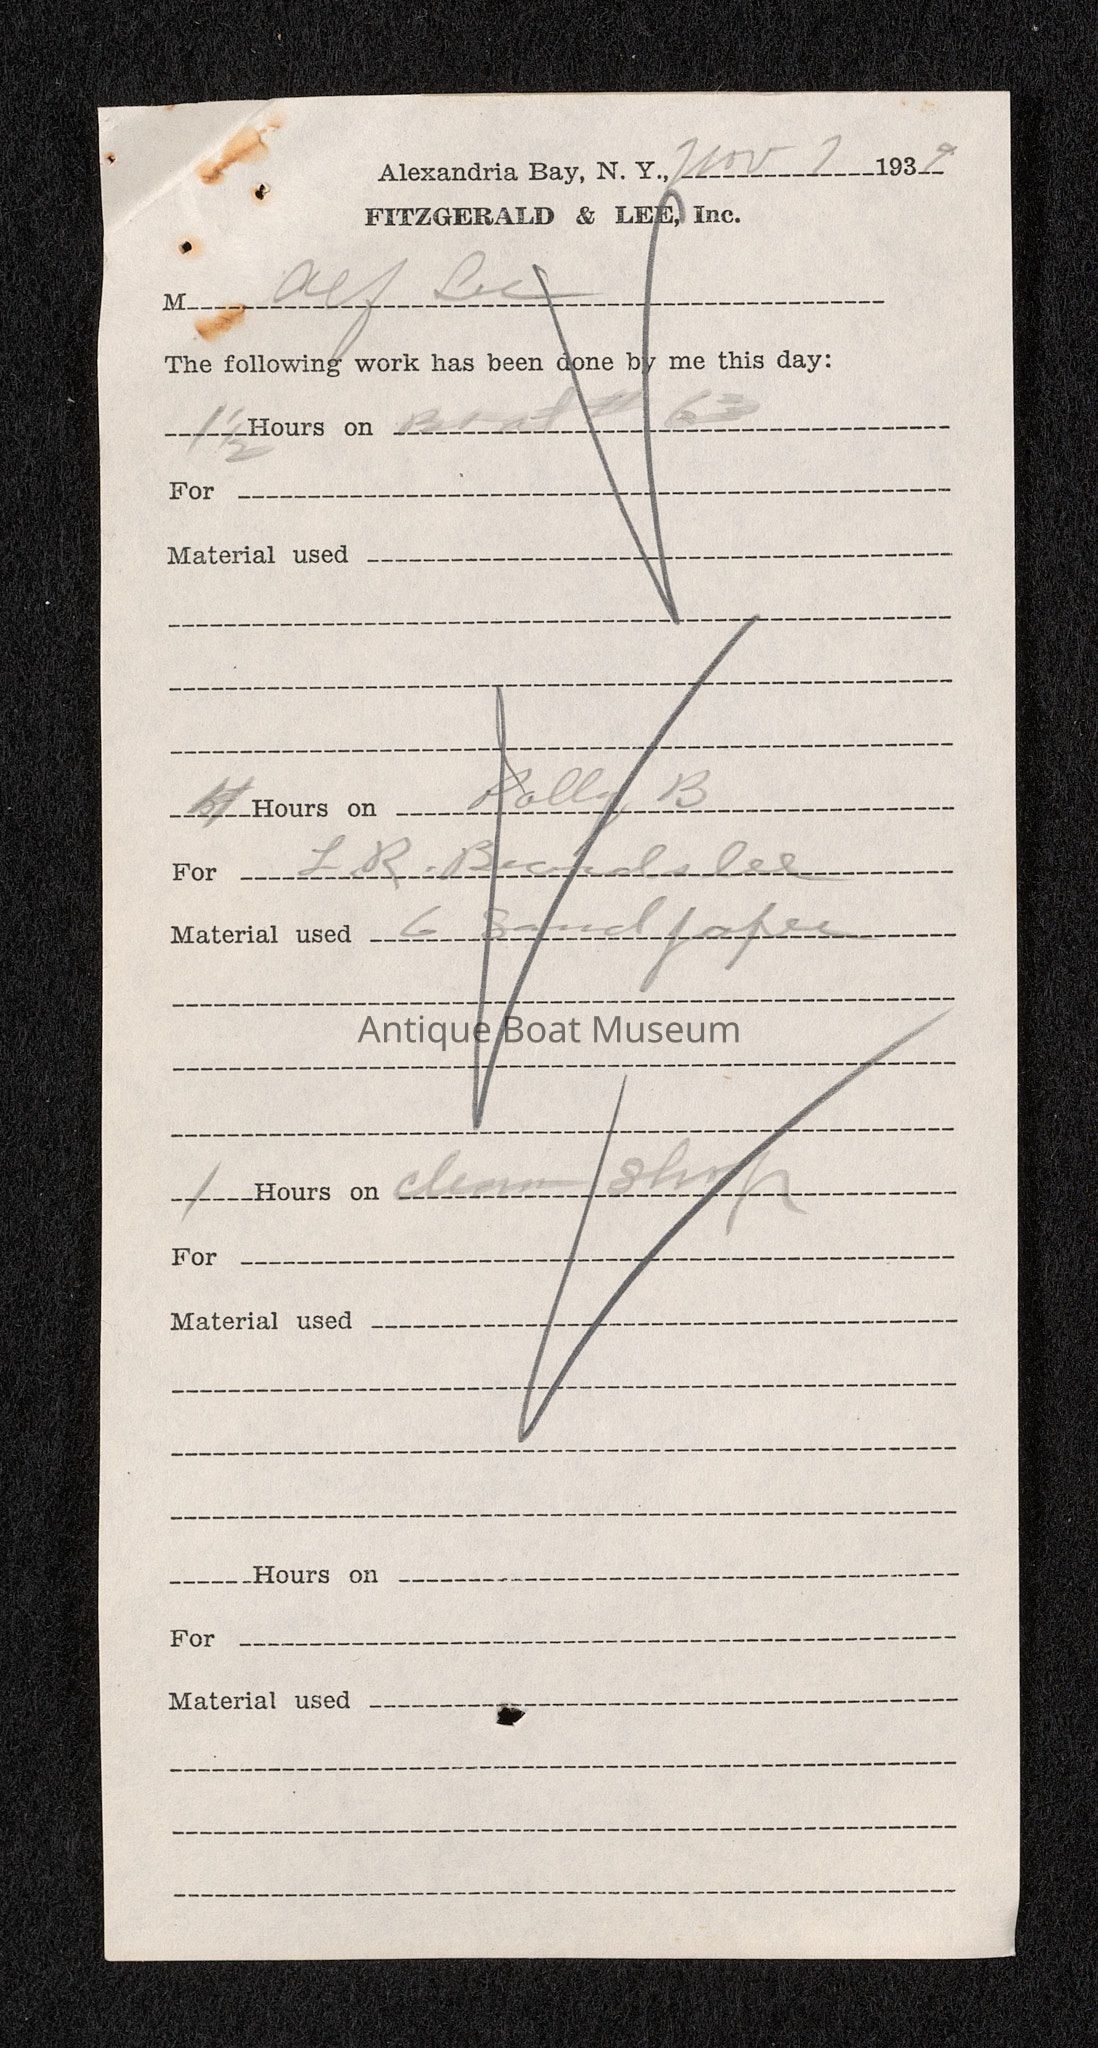 Alexandria Bay, N. Y., Nov 7 1939
FITZGERALD & LEE, Inc.
M Alf Lee
The following work has been done by me this day:
1½ Hours on Boat # 63
For
Material used
Hours on Polly B
For L. R. Beardslee
Material used 6 Sand paper
Antique Boat Museum
1 Hours on clean shop
For
Material used
Hours on
For
Material used